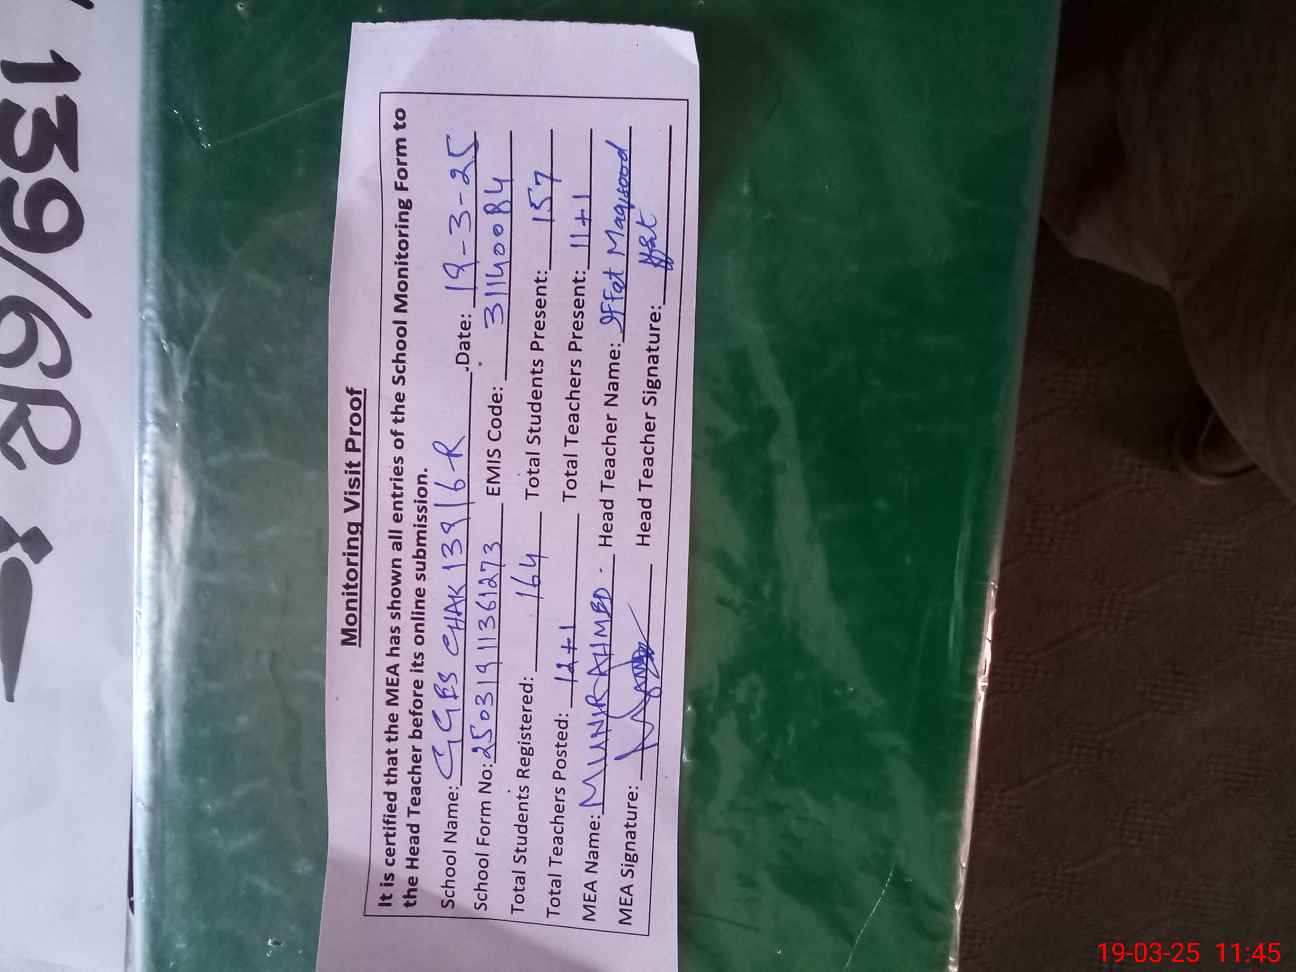 139/6R
Monitoring Visit Proof
It is certified that the MEA has shown all entries of the School Monitoring Form to
the Head Teacher before its online submission.
School Name: GGES CHAK 139/6-R Date: 19-3-25
School Form No: 25031911361273 EMIS Code: 31140084
Total Students Registered: 164 Total Students Present: 157
Total Teachers Posted: 12+1 Total Teachers Present: 11+1
MEA Name: MUNIR AHMED. Head Teacher Name: Iffat Maqsood
MEA Signature: Head Teacher Signature: Iffat
19-03-25 11:45